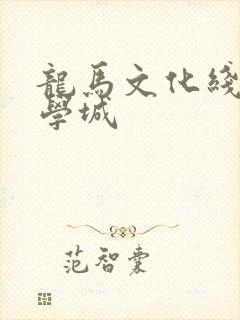 龍馬文化綫
學城
范智裏